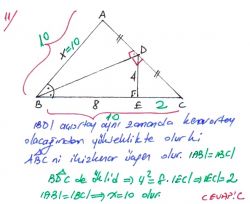 11)
A
10
x=10
D
4
B
8
E
2
C
10
|BD| açıortay aynı zamanda kenarortay
olacağından yükseklikte olur ki
ABC ni ikizkenar üçgen olur. |AB|=|BC|
BDC de öklid ⇒ 4²=8.|EC| ⇒ |EC|=2
|AB|=|BC| ⇒ x=10 olur.
CEVAP:C